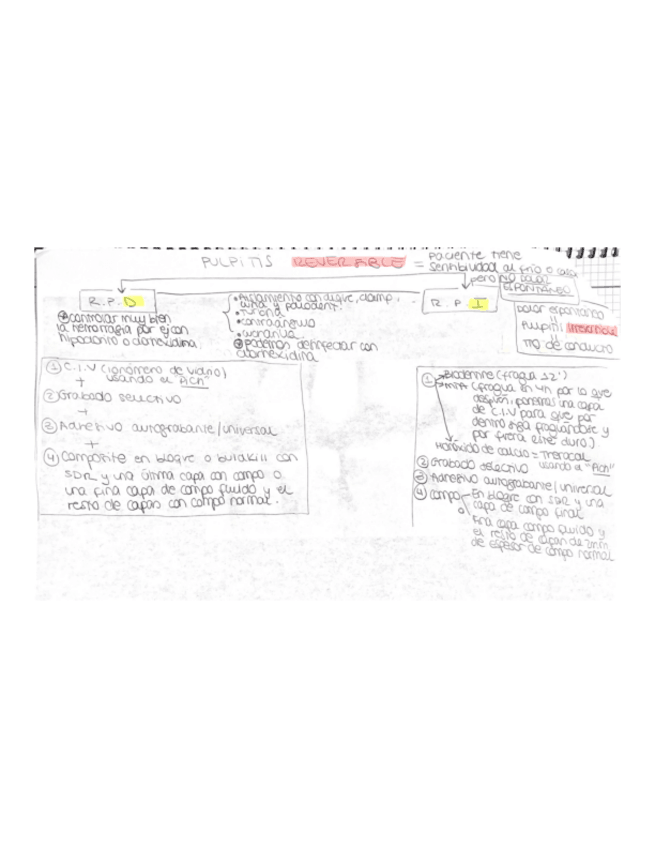 PULPITIS REVERSIBLE = Paciente tiene
sensibilidad al frío o calor
pero NO DOLOR
ESPONTÁNEO
R.P.D
R.P.I
• Aislamiento con dique, clamp,
• turbina
• contraángulo
• podemos desinfectar con
clorhexidina
controlar muy bien
la hemorragia por ej con
hipoclorito o clorhexidina
Dolor espontáneo
Pulpitis
Tto de conducto
① C.I.V (ionómero de vidrio)
usando el "Pich"
+
② Grabado selectivo
+
③ Adhesivo autograbante/universal
+
④ Composite en bloque o con
SDR y una última capa con compo o
una fina capa de compo fluido y el
resto de capas con compo normal.
① → Biodentine (fragua 12')
→ MTA (fragua en 4h por lo que
después, pondremos una capa
de C.I.V para que por
dentro siga fraguándose y
por fuera esté duro)
Hidróxido de calcio =
usando el "Pich"
② Grabado selectivo
③ Adhesivo autograbante/universal
④ Compo - En bloque con SDR y una
capa de compo final
o
Fina capa compo fluido y
el resto de capas de 2mm
de espesor de compo normal